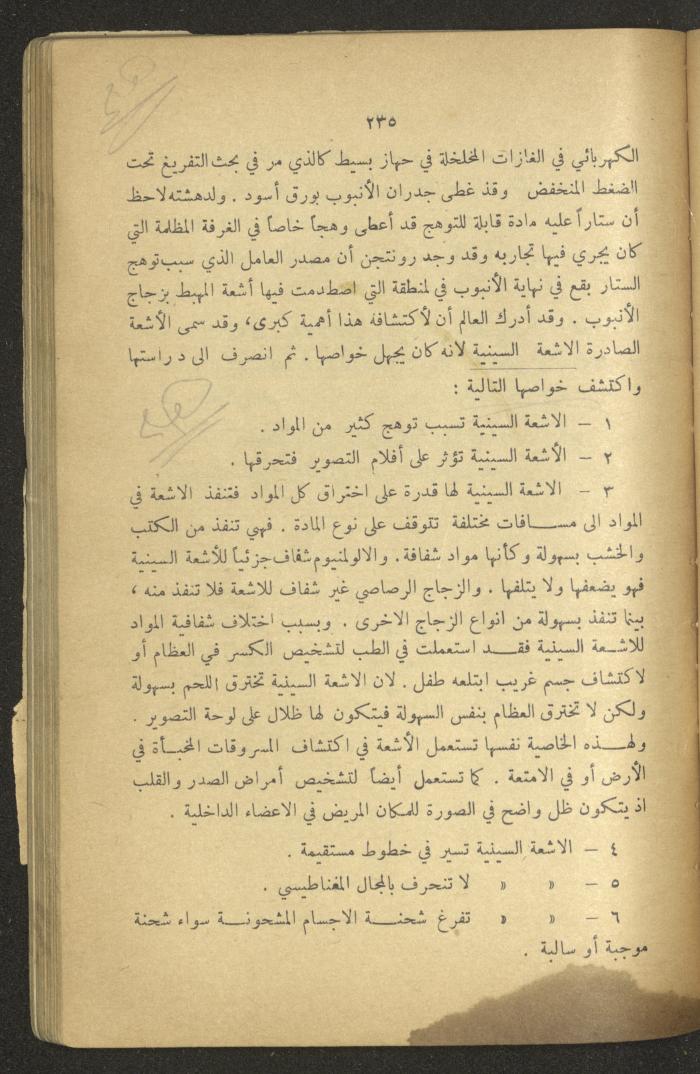 ٢٣٥
الكهربائي في الغازات المخلخلة في جهاز بسيط كالذي مر في بحث التفريغ تحت
الضغط المنخفض وقد غطى جدران الأنبوب بورق أسود . ولدهشته لاحظ
أن ستاراً عليه مادة قابلة للتوهج قد أعطى وهجاً خاصاً في الغرفة المظلمة التي
كان يجري فيها تجاربه وقد وجد رونتجن أن مصدر العامل الذي سبب توهج
الستار يقع في نهاية الأنبوب في لمنطقة التي اصطدمت فيها أشعة المهبط بزجاج
الأنبوب . وقد أدرك العالم أن لأكتشافه هذا أهمية كبرى، وقد سمى الأشعة
الصادرة الاشعة السينية لانه كان يجهل خواصها . ثم انصرف الى دراستها
واكتشف خواصها التالية :
١ – الاشعة السينية تسبب توهج كثير من المواد .
٢ – الأشعة السينية تؤثر على أفلام التصوير فتحرقها .
٣ – الاشعة السينية لها قدرة على اختراق كل المواد فتنفذ الاشعة في
المواد الى مسافات مختلفة تتوقف على نوع المادة . فهي تنفذ من الكتب
والخشب بسهولة وكأنها مواد شفافة. والالومنيوم شفاف جزئياً للأشعة السينية
فهو يضعفها ولا يتلفها . والزجاج الرصاصي غير شفاف للاشعة فلا تنفذ منه ،
بينما تنفذ بسهولة من انواع الزجاج الاخرى . وبسبب اختلاف شفافية المواد
للاشعة السينية فقد استعملت في الطب لتشخيص الكسر في العظام أو
لاكتشاف جسم غريب ابتلعه طفل . لان الاشعة السينية تخترق اللحم بسهولة
ولكن لا تخترق العظام بنفس السهولة فيتكون لها ظلال على لوحة التصوير .
ولهذه الخاصية نفسها تستعمل الأشعة في اكتشاف المسروقات المخبأة في
الأرض أو في الامتعة . كما تستعمل أيضاً لتشخيص أمراض الصدر والقلب
اذ يتكون ظل واضح في الصورة للمكان المريض في الاعضاء الداخلية .
٤ – الاشعة السينية تسير في خطوط مستقيمة .
٥ – » » لا تنحرف بالمجال المغناطيسي .
٦ – » » تفرغ شحنة الاجسام المشحونة سواء شحنة
موجبة أو سالبة .